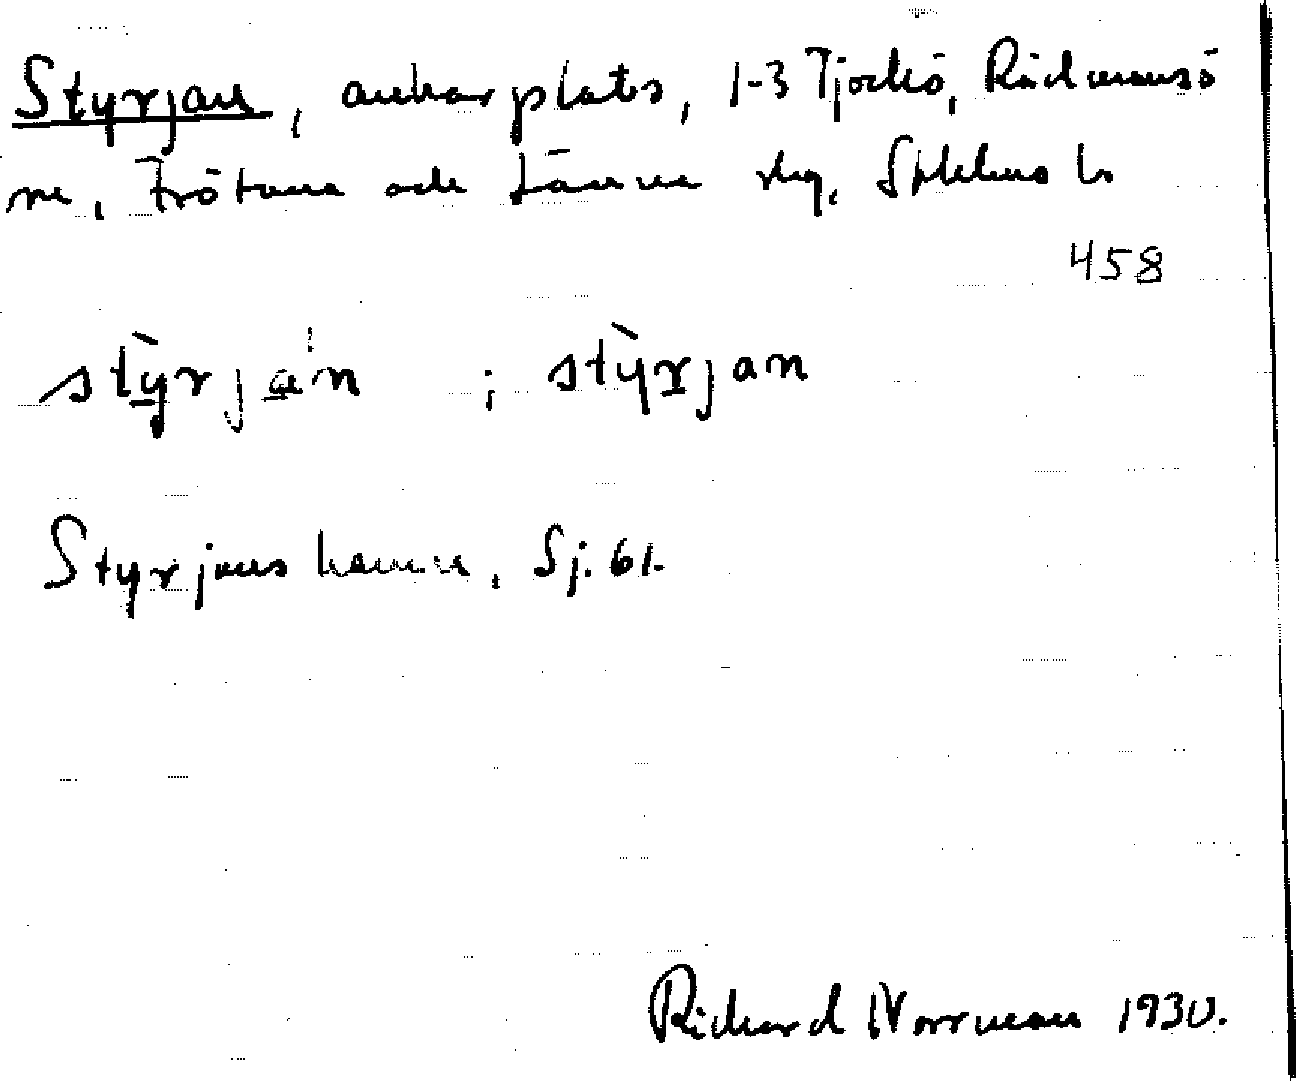 Styrjan, ankarplats, 1-3 Tjockö, Rådmansö
sn, Frötuna och Länna skg, Sthlms l.
458
stỳrján ; stỳrjan
Styrjans hamn, Sj. 61.
Rickard Norrman 1930.